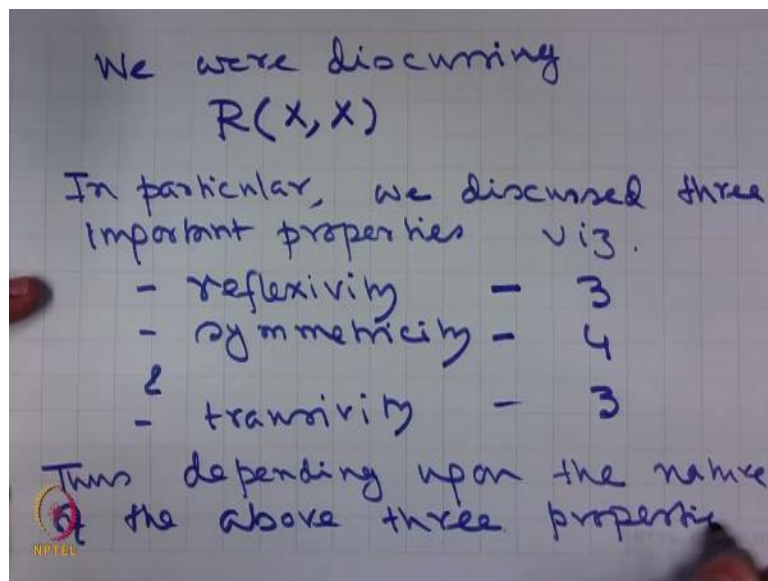 We were discussing
R(X,X)
In particular, we discussed three
important properties viz.
- reflexivity - 3
- symmetricity - 4
&
- transivity - 3
Thus depending upon the nature
of the above three propertie
NPTEL